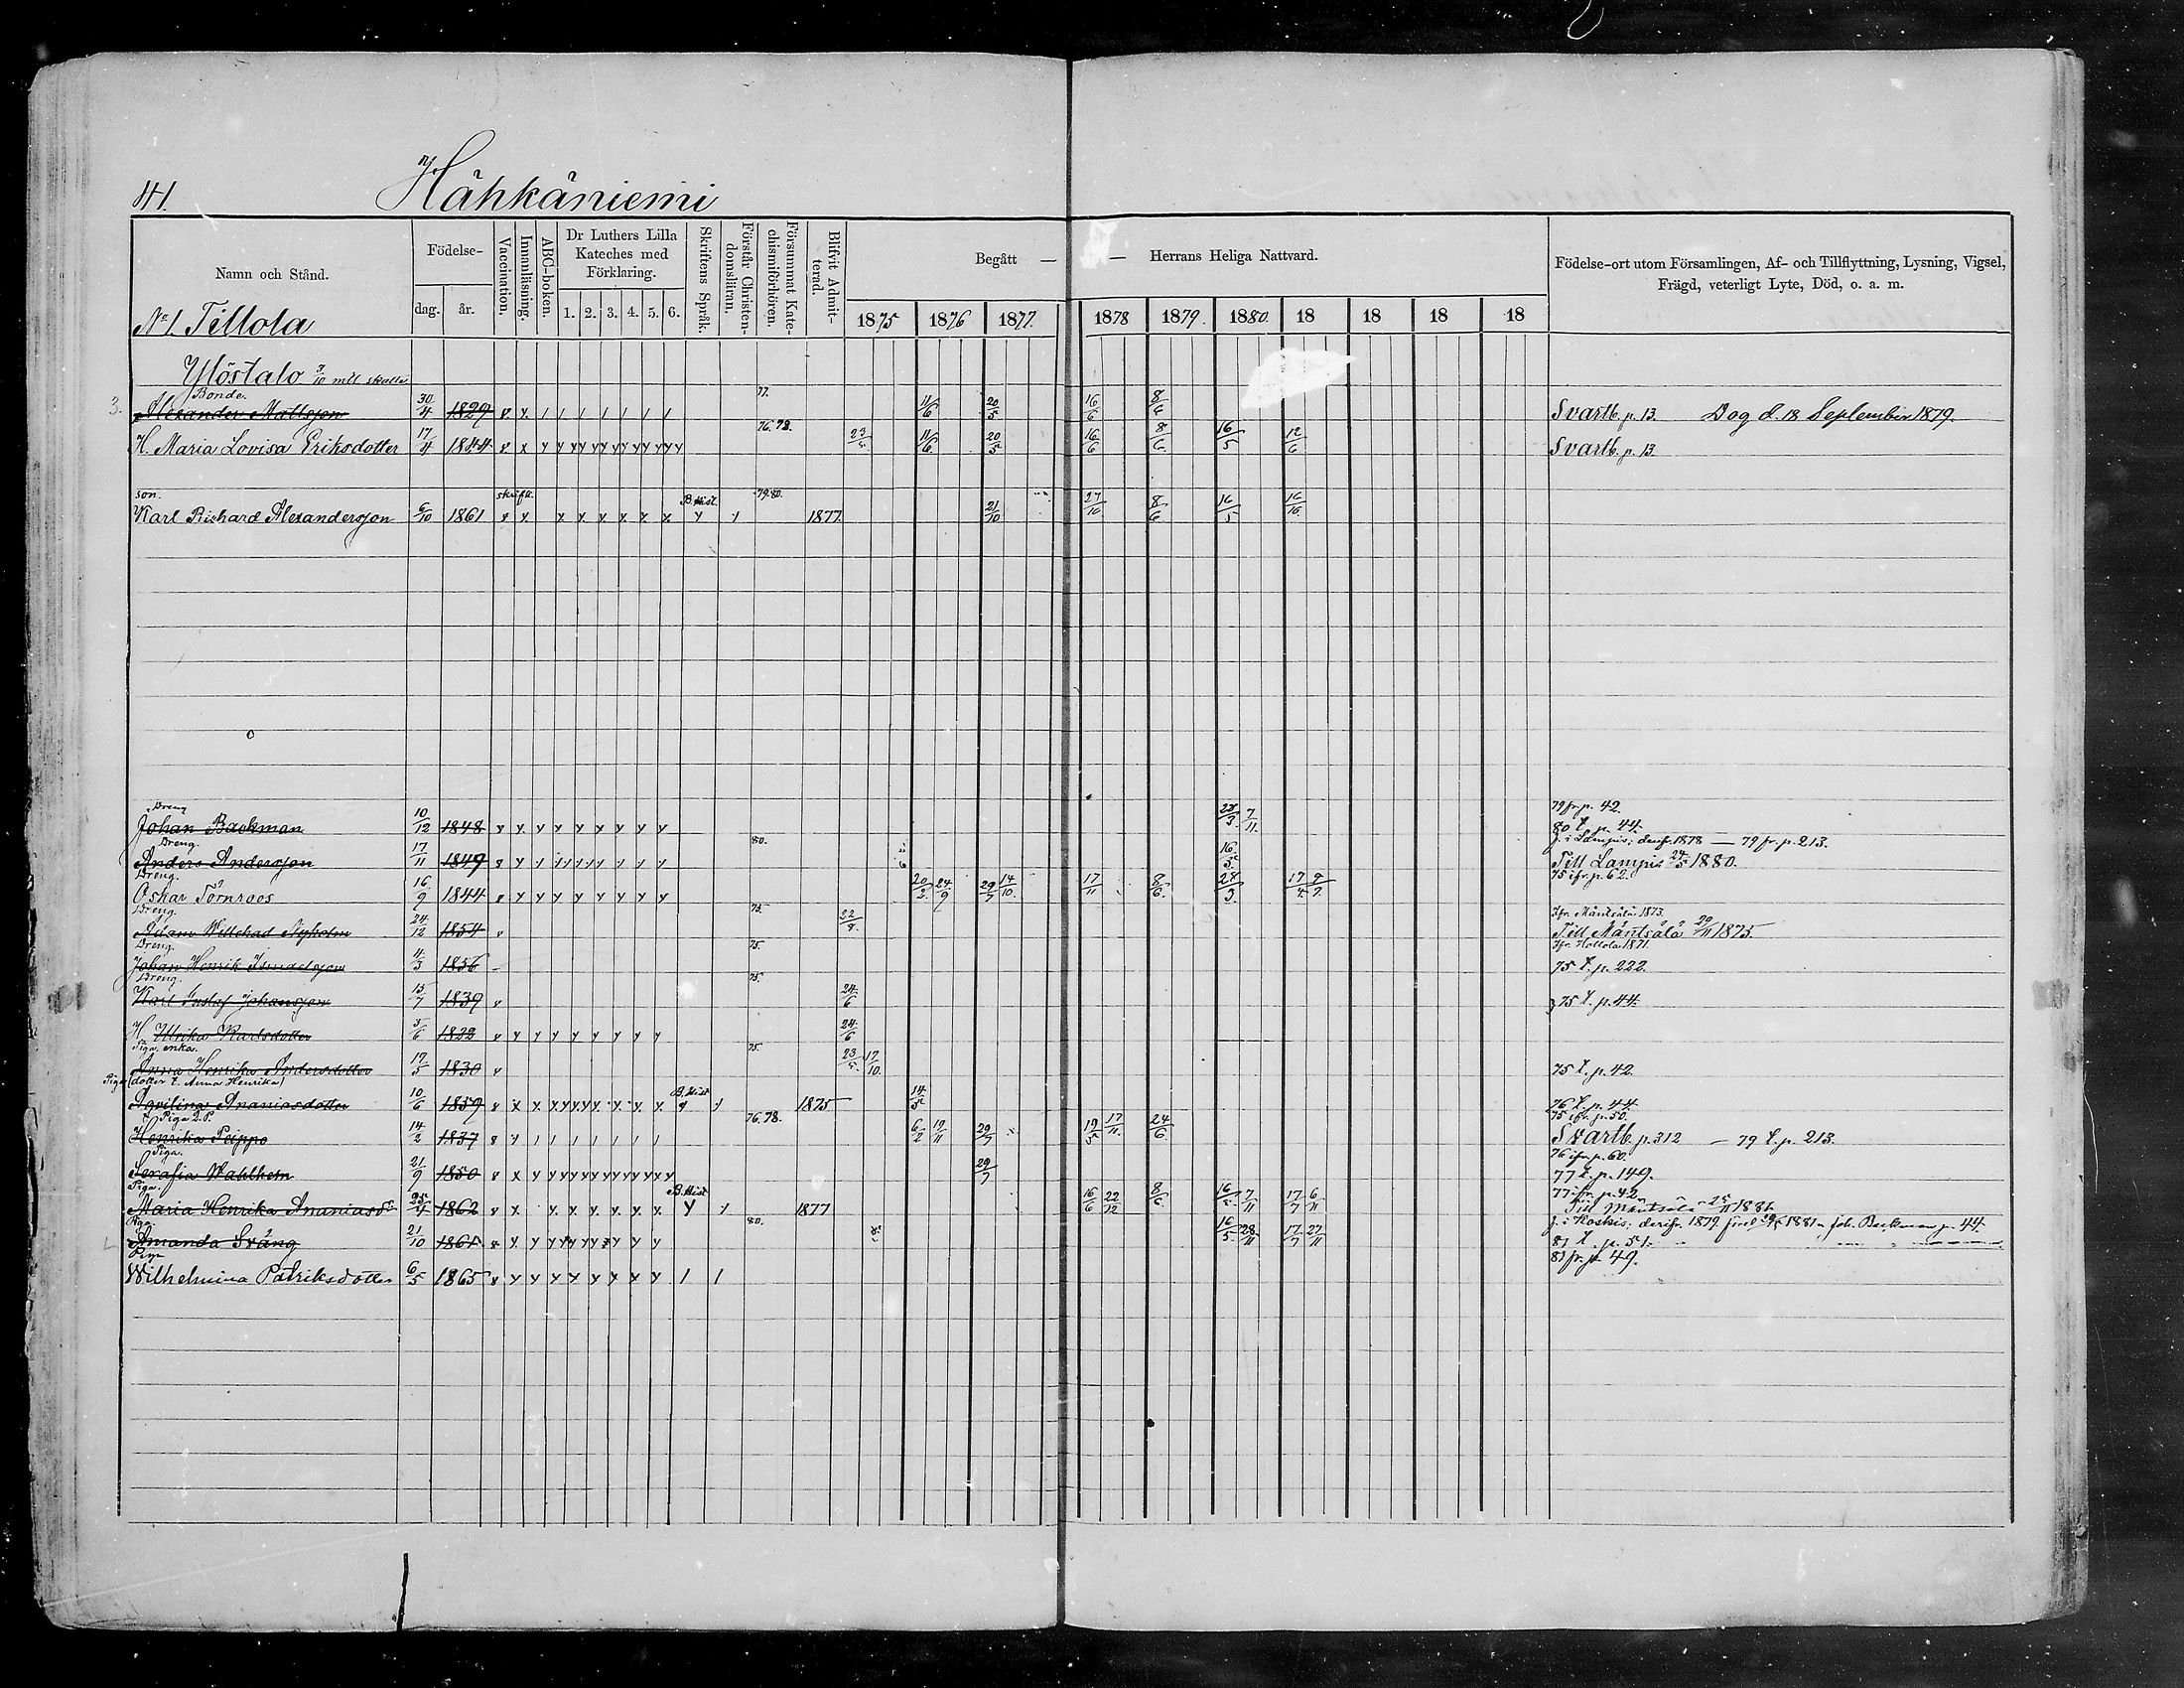 41. Hähkäniemi
Namn och Stånd. Födelse- dag. år. Vaccination. Innanläsning. ABC-boken. Dr Luthers Lilla Kateches med Förklaring. 1. 2. 3. 4. 5. 6. Skriftens Språk. Förstår Christendomsläran. Försummat Katechismiförhören. Blifvit Admitterad. Begått — — Herrans Heliga Nattvard. Födelse-ort utom Församlingen, Af- och Tillflyttning, Lysning, Vigsel, Frägd, veterligt Lyte, Död, o. a. m.
No 1. Tillola 1875 1876 1877. 1878 1879. 1880. 18 18 18 18
Ylöstalo 3/10 mtl skatte
Bonde. 77.
3. Alexander Mattsson 30/4 1829 11/6 20/5 16/6 8/6 Svartb. p. 13. Dog d. 18 September 1879.
76. 78.
H. Maria Lovisa Eriksdotter 17/4 1844 23/5 11/6 20/5 16/6 8/6 16/5 12/6 Svartb. p. 13.
son. B. Hist. 79. 80.
Karl Richard Alexandersson 6/10 1861 1877. 21/10 27/10 8/6 16/5 16/10
Dreng 79 fr. p. 42.
Johan Backman 10/12 1848 28/3 7/11 80 t. p. 44.
Dreng. 80. f. i Lampis; derifr. 1878 — 79 fr. p. 213.
Anders Andersson 17/11 1849 16/5 Till Lampis 24/5 1880.
Dreng. 75 ifr. p. 62.
Oskar Törnroos 16/9 1844 20/2 24/9 29/7 14/10 17/11 8/6 28/3 17/4 9/7
Dreng. 75. Ifr. Mäntsälä 1873.
Adam Willehad Nyholm 24/12 1854 22/8 Till Mäntsälä 29/11 1875.
Dreng. 75. Ifr. Hollola 1871.
Johan Henrik Ismaelsson 4/3 1856 75 t. p. 222.
Dreng. 75.
Karl Gustaf Johansson 15/7 1839 24/6 } 75 t. p. 44.
H. Ulrika Karlsdotter 5/6 1822 24/6
Piga, enka. 75.
Anna Henrika Andersdotter 17/5 1830 23/5 17/10 75 t. p. 42.
Piga (dotter t. Anna Henrika) B. Hist
Aqvilina Ananiasdotter 10/6 1859 1875 14/5 76 t. p. 44.
Piga 76. 78. 75 ifr. p. 50.
Henrika Peippo 14/2 1837 6/2 19/11 29/7 19/5 17/11 24/6 Svartb. p. 312 — 79 t. p. 213.
Piga. 76 ifr. p. 60.
Serafia Wahlhem 21/9 1850 29/7 77 t. p. 149.
Piga. B. Hist 77 ifr. p. 42.
Maria Henrika Ananiasdr 25/4 1862 1877 16/6 22/12 8/6 16/5 7/11 17/7 6/11 Till Mäntsälä 25/11 1881.
Piga. 80. f. i Koskis; derifr. 1879. 1881 Joh. Backman p. 44
Amanda Sväng 21/10 1861 16/5 28/11 17/7 27/11 81 t. p. 51.
Piga 81 fr. p. 49.
Wilhelmina Patriksdotter 6/5 1865